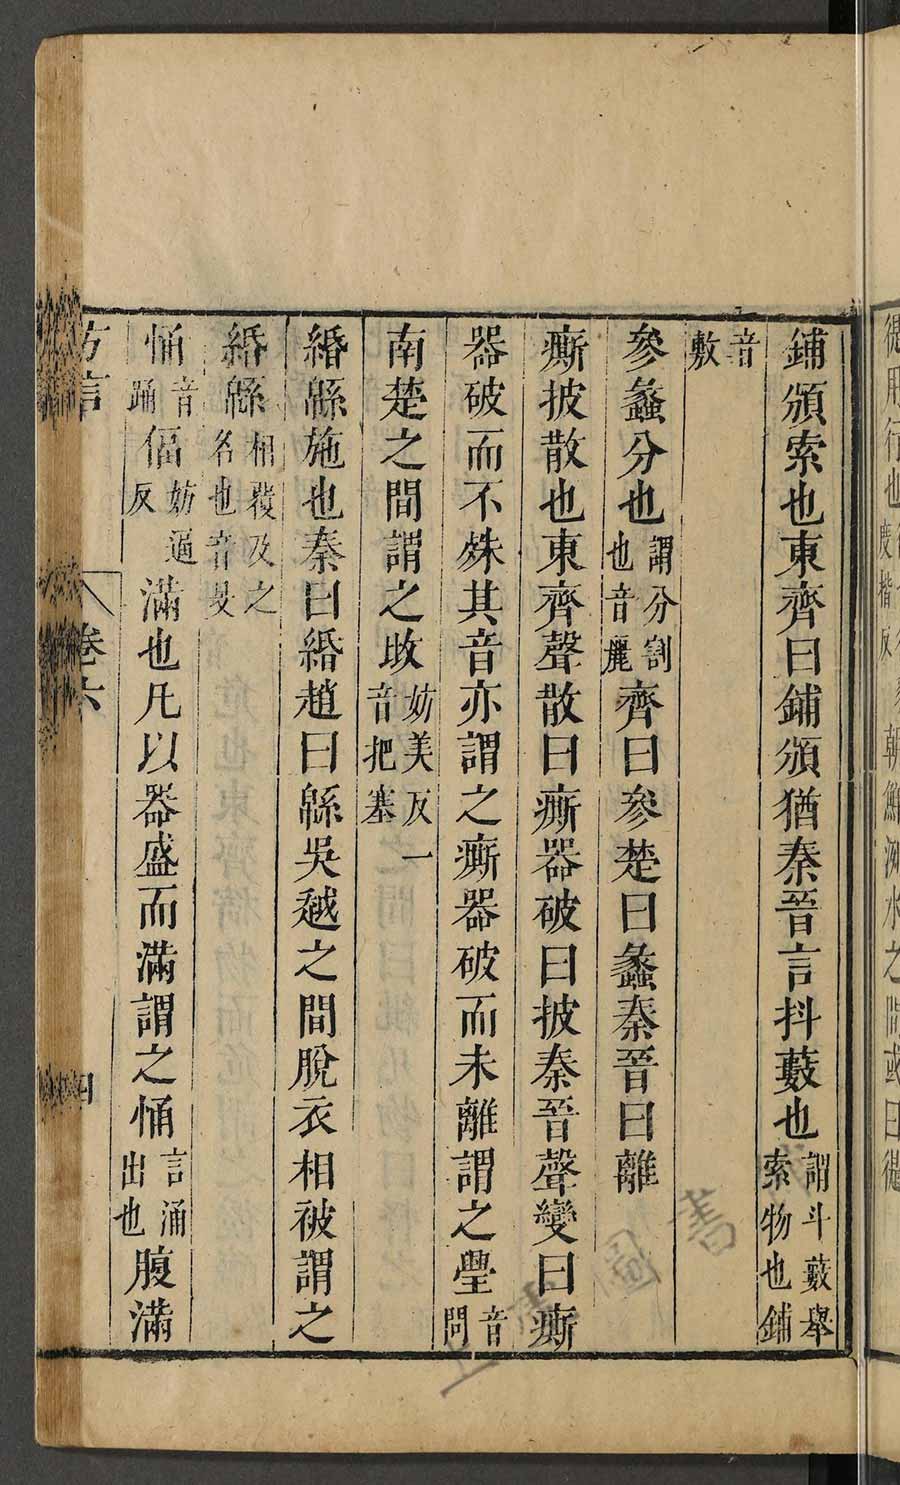 鋪頒索也東齊曰鋪頒猶秦晉言抖藪也謂斗藪舉索物也鋪
音敷
參蠡分也謂分割也音麗齊曰參楚曰蠡秦晉曰離
㾷披散也東齊聲散曰㾷器破曰披秦晉聲變曰㾷
器破而不殊其音亦謂之㾷器破而未離謂之璺音問
南楚之間謂之㩻妨美反一音把塞
緡緜施也秦曰緡趙曰緜吳越之間脫衣相被謂之
緡緜相覆及之名也音旻
悀音踊偪妨逼反滿也凡以器盛而滿謂之悀言涌出也腹滿
方言
卷六
四